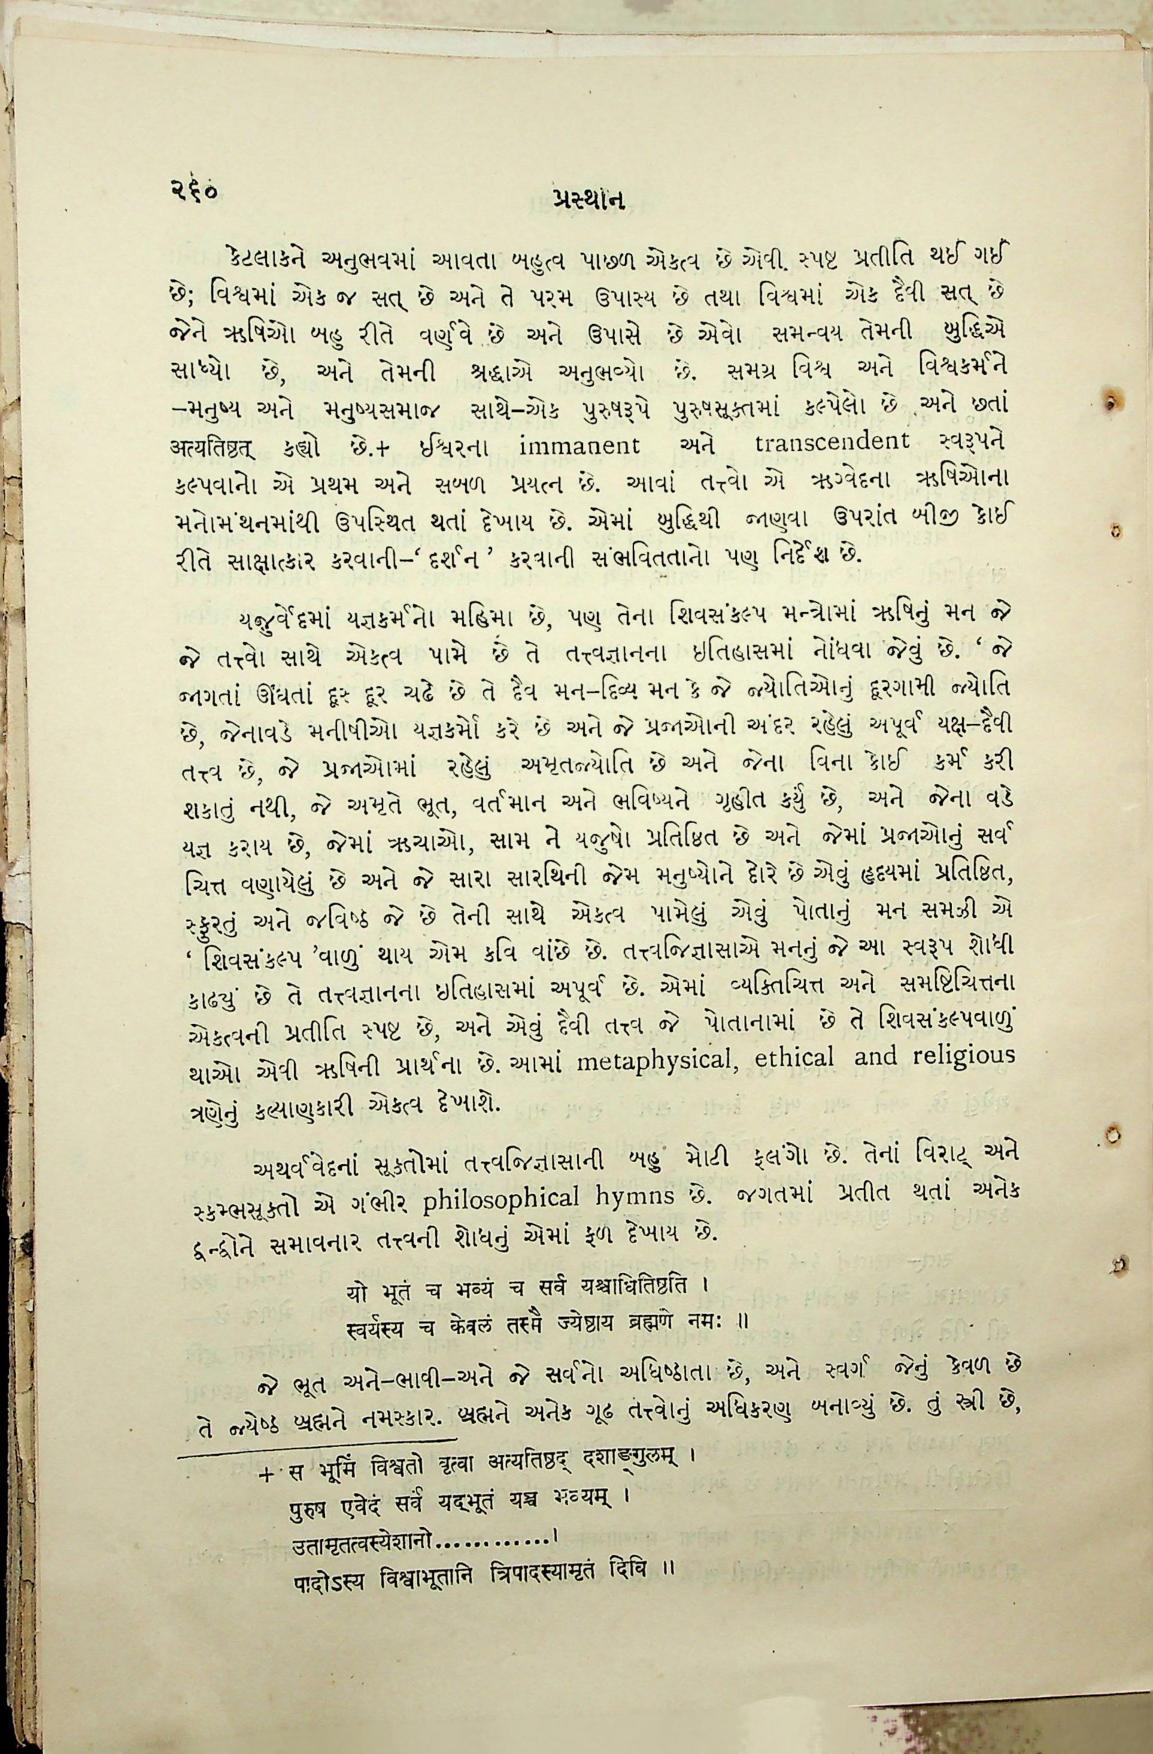 ૨૯૦
પ્રસ્થાન
કેટલાકને અનુભવમાં આવતા બહુત્વ પાછળ એકત્વ છે એવી. સ્પષ્ટ પ્રતીતિ થઈ ગઈ
છે; વિશ્વમાં એક જ સત્ છે અને તે પરમ ઉપાસ્ય છે તથા વિશ્વમાં એક દૈવી સત્ છે
જેને ઋષિઓ બહુ રીતે વર્ણવે છે અને ઉપાસે છે એવો સમન્વય તેમની બુદ્ધિએ
સાધ્યો છે, અને તેમની શ્રદ્ધાએ અનુભવ્યો છે. સમગ્ર વિશ્વ અને વિશ્વકર્મને
–મનુષ્ય અને મનુષ્યસમાજ સાથે–એક પુરુષરૂપે પુરુષસૂક્તમાં કલ્પેલો છે અને છતાં
अत्यतिष्ठत् કહ્યો છે.+ ઈશ્વરના immanent અને transcendent સ્વરૂપને
કલ્પવાનો એ પ્રથમ અને સબળ પ્રયત્ન છે. આવાં તત્ત્વો એ ઋગ્વેદના ઋષિઓના
મનોમંથનમાંથી ઉપસ્થિત થતાં દેખાય છે. એમાં બુદ્ધિથી જાણવા ઉપરાંત બીજી કોઈ
રીતે સાક્ષાત્કાર કરવાની–‘ દર્શન ’ કરવાની સંભવિતતાનો પણ નિર્દેશ છે.
યજુર્વેદમાં યજ્ઞકર્મનો મહિમા છે, પણ તેના શિવસંકલ્પ મન્ત્રોમાં ઋષિનું મન જે
જે તત્ત્વો સાથે એકત્વ પામે છે તે તત્ત્વજ્ઞાનના ઇતિહાસમાં નોંધવા જેવું છે. ‘ જે
જાગતાં ઊંઘતાં દૂર દૂર ચઢે છે તે દૈવ મન–દિવ્ય મન કે જે જ્યોતિઓનું દૂરગામી જ્યોતિ
છે, જેનાવડે મનીષીઓ યજ્ઞકર્મો કરે છે અને જે પ્રજાઓની અંદર રહેલું અપૂર્વ યક્ષ–દૈવી
તત્ત્વ છે, જે પ્રજાઓમાં રહેલું અમૃતજ્યોતિ છે અને જેના વિના કોઈ કર્મ કરી
શકાતું નથી, જે અમૃતે ભૂત, વર્તમાન અને ભવિષ્યને ગૃહીત કર્યું છે, અને જેના વડે
યજ્ઞ કરાય છે, જેમાં ઋચાઓ, સામ ને યજુષો પ્રતિષ્ઠિત છે અને જેમાં પ્રજાઓનું સર્વ
ચિત્ત વણાયેલું છે અને જે સારા સારથિની જેમ મનુષ્યોને દોરે છે એવું હૃદયમાં પ્રતિષ્ઠિત,
સ્ફુરતું અને જવિષ્ઠ જે છે તેની સાથે એકત્વ પામેલું એવું પોતાનું મન સમઝી એ
‘ શિવસંકલ્પ ’વાળું થાય એમ કવિ વાંછે છે. તત્ત્વજિજ્ઞાસાએ મનનું જે આ સ્વરૂપ શોધી
કાઢ્યું છે તે તત્ત્વજ્ઞાનના ઇતિહાસમાં અપૂર્વ છે. એમાં વ્યક્તિચિત્ત અને સમષ્ટિચિત્તના
એકત્વની પ્રતીતિ સ્પષ્ટ છે, અને એવું દૈવી તત્ત્વ જે પોતાનામાં છે તે શિવસંકલ્પવાળું
થાઓ એવી ઋષિની પ્રાર્થના છે. આમાં metaphysical, ethical and religious
ત્રણેનું કલ્યાણકારી એકત્વ દેખાશે.
અથર્વવેદનાં સૂક્તોમાં તત્ત્વજિજ્ઞાસાની બહુ મોટી ફલંગો છે. તેનાં વિરાટ્ અને
સ્કમ્ભસૂક્તો એ ગંભીર philosophical hymns છે. જગતમાં પ્રતીત થતાં અનેક
દ્વન્દ્વોને સમાવનાર તત્ત્વની શોધનું એમાં ફળ દેખાય છે.
यो भूतं च भव्यं च सर्व यश्चाधितिष्ठति ।
स्वर्यस्य च केवलं तस्मै ज्येष्ठाय ब्रह्मणे नमः ॥
જે ભૂત અને–ભાવી–અને જે સર્વનો અધિષ્ઠાતા છે, અને સ્વર્ગ જેનું કેવળ છે
તે જ્યેષ્ઠ બ્રહ્મને નમસ્કાર. બ્રહ્મને અનેક ગૂઢ તત્ત્વોનું અધિકરણ બનાવ્યું છે. તું સ્ત્રી છે,
+ स भूमिं विश्वतो वृत्वा अत्यतिष्ठद् दशाङ्गुलम् ।
पुरुष एवेदं सर्वं यद्भूतं यच्च भव्यम् ।
उतामृतत्वस्येशानो............।
पादोऽस्य विश्वाभूतानि त्रिपादस्यामृतं दिवि ॥